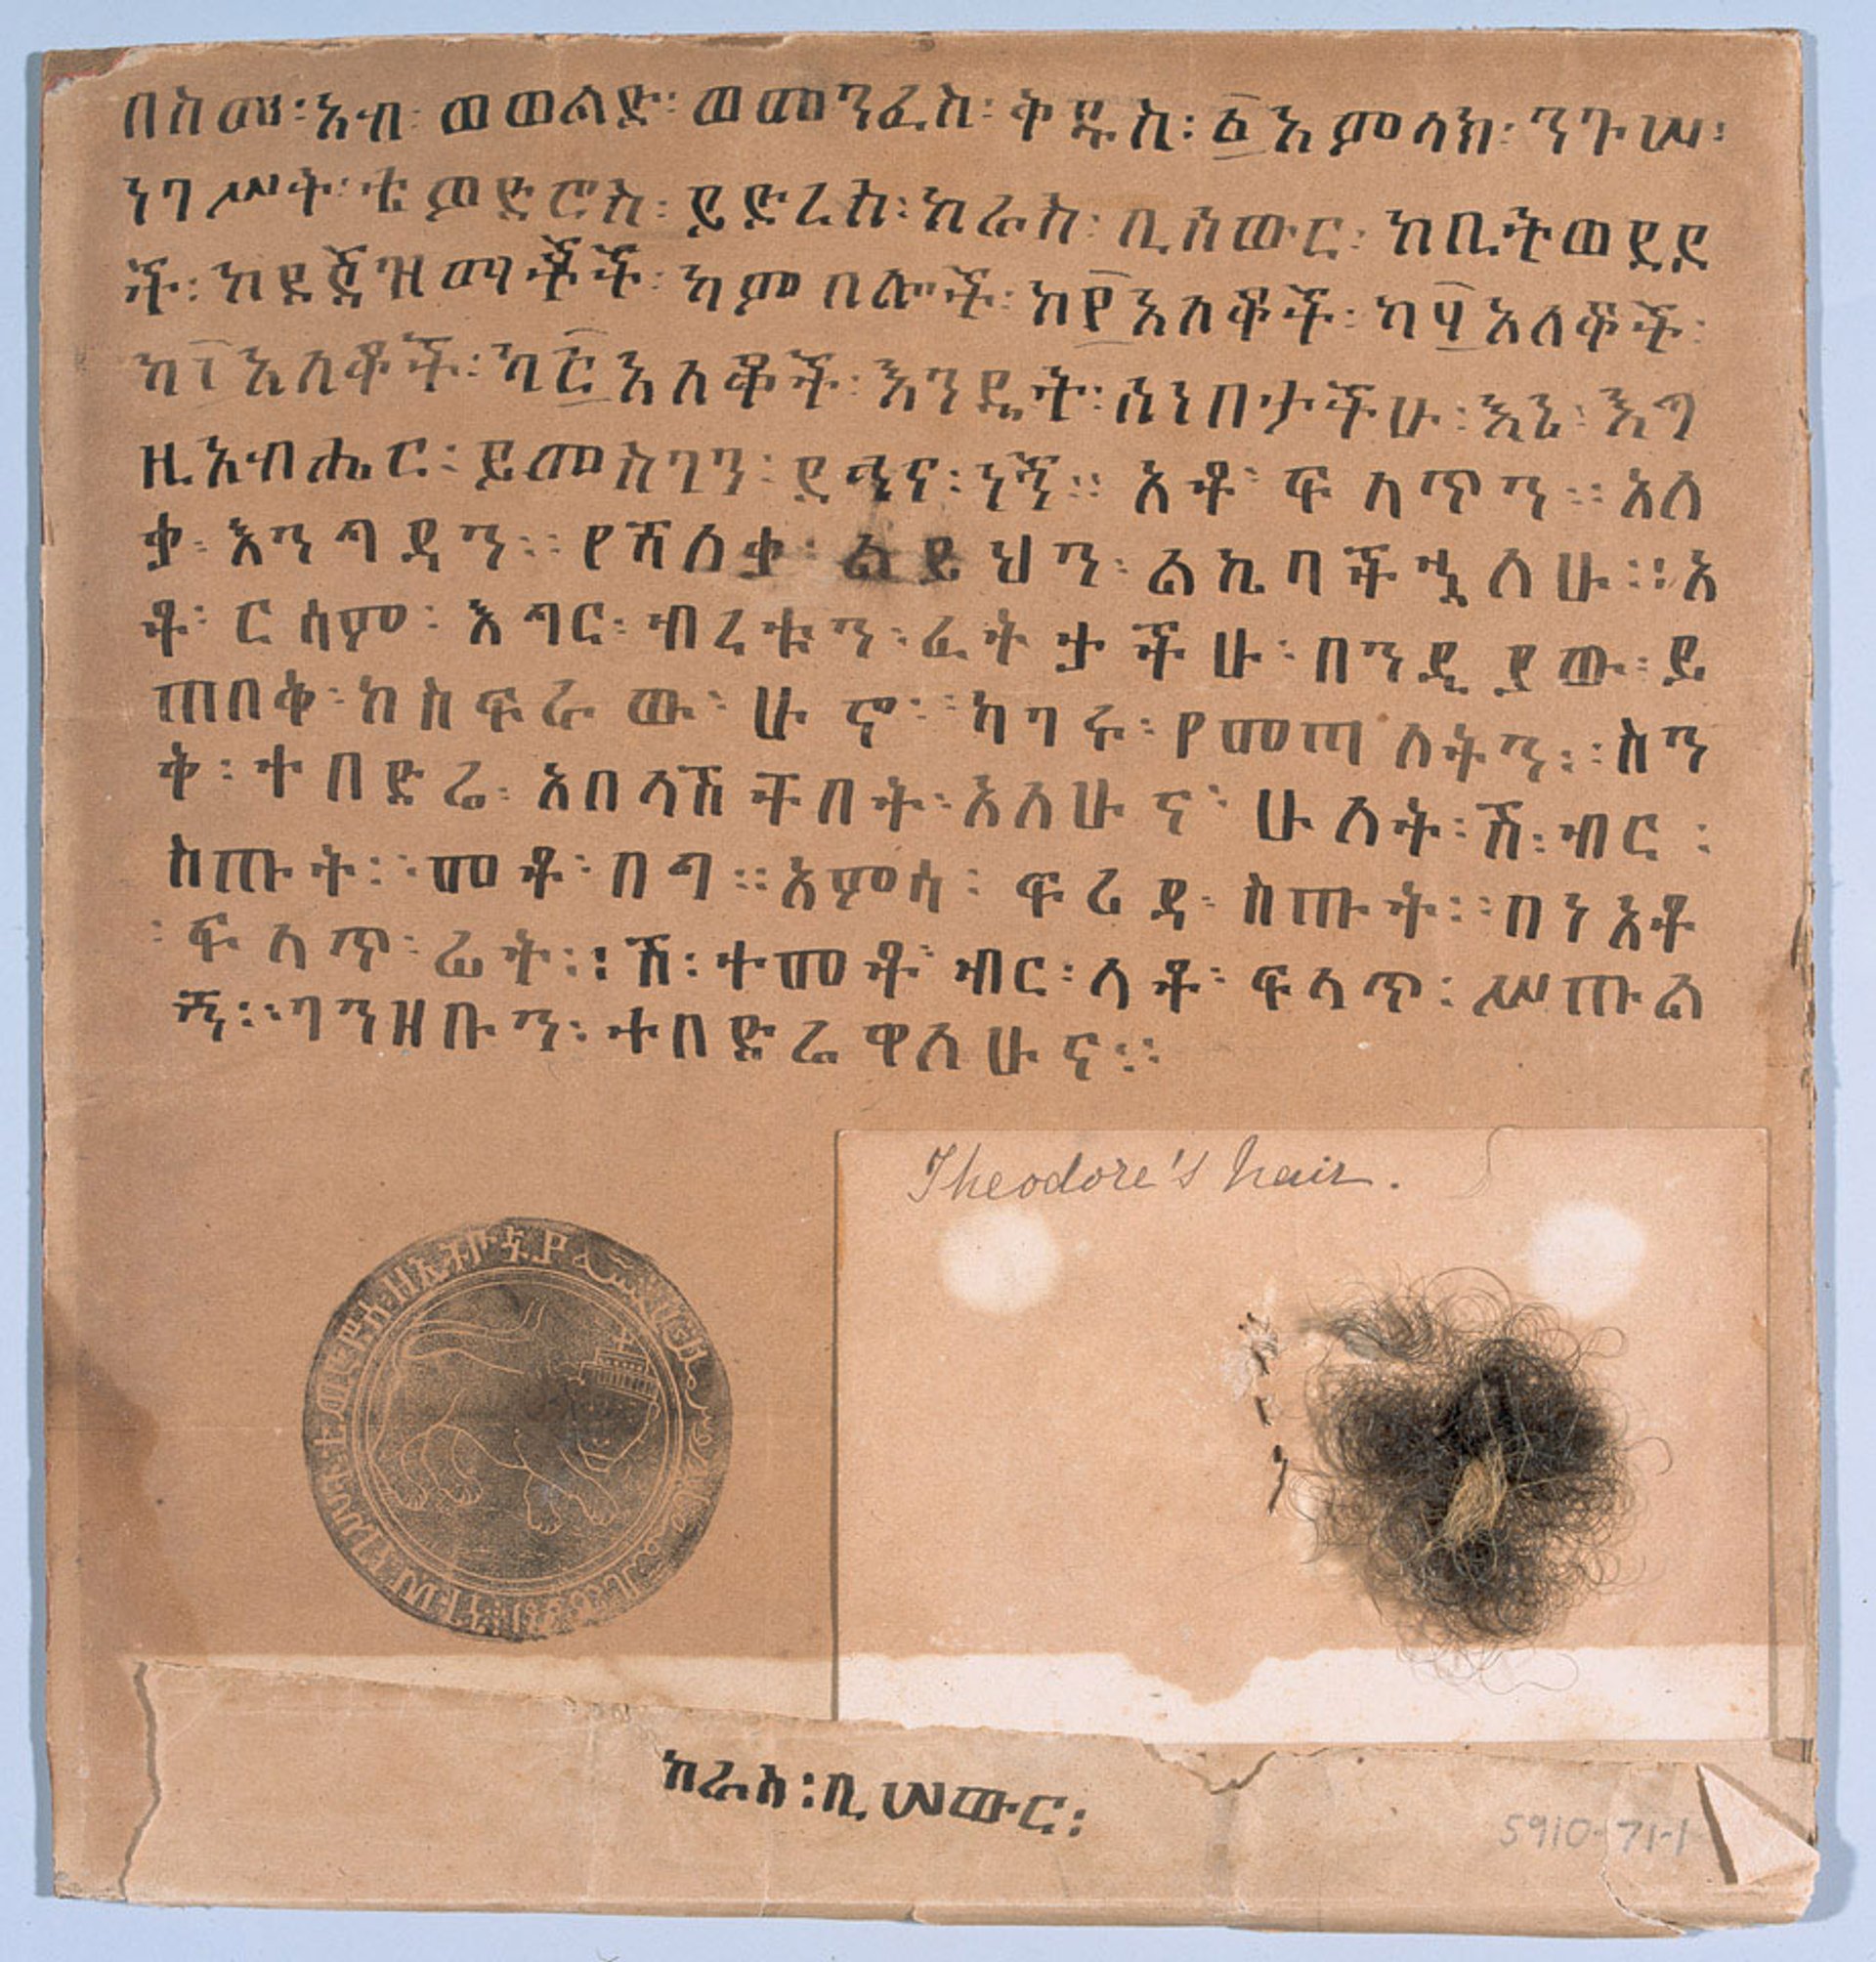 በስመ፡ አብ፡ ወወልድ፡ ወመንፈስ፡ ቅዱስ፡ ፩አምላክ፡ ንጉሠ፡
ነገሥት፡ ቴዎድሮስ፡ ይድረስ፡ ከራስ፡ ቢሰውር፡ ከቢትወደደ
ች፡ ከደጀዝማቾች፡ ካምበሎች፡ ከ፲፻አለቆች፡ ካ፶አለቆች፡
አለቆች፡ አለቆች፡ እንዴት፡ ሰነበታችሁ፡ እኔ፡ እግ
ዚአብሔር፡ ይመስገን፡ ደኅና፡ ነኝ። አቶ፡ ፍላጥን። አለ
ቃ፡ እንግዳን። የሻለቃ፡ ልደ ህን፡ ልኬባችኋለሁ። አ
ቶ፡ ርሳም፡ እግር፡ ብረቱን፡ ፈትታችሁ፡ በንዲያው፡ ይ
ጠበቅ፡ ከስፍራው፡ ሁኖ። ካገሩ፡ የመጣለትን። ስን
ቅ፡ ተበድሬ፡ አበላሽቸበት፡ አለሁና፡ ሁለት፡ ሺ፡ ብር፡
ስጡት። መቶ፡ በግ። አምሳ፡ ፍሪዳ፡ ስጡት። በነአቶ
፡ ፍላጥ፡ ፊት። ሺ፡ ተመቶ፡ ብር፡ ላቶ፡ ፍላጥ፡ ሥጡል
ኝ። ገንዘቡን፡ ተበድሬዋለሁና።
Theodore's hair.
ንጉሠ፡ ነገሥት፡ ቴዎድሮስ፡ ዘኢትዮጵያ
ከራስ፡ ቢሠውር፡
5910-71-1